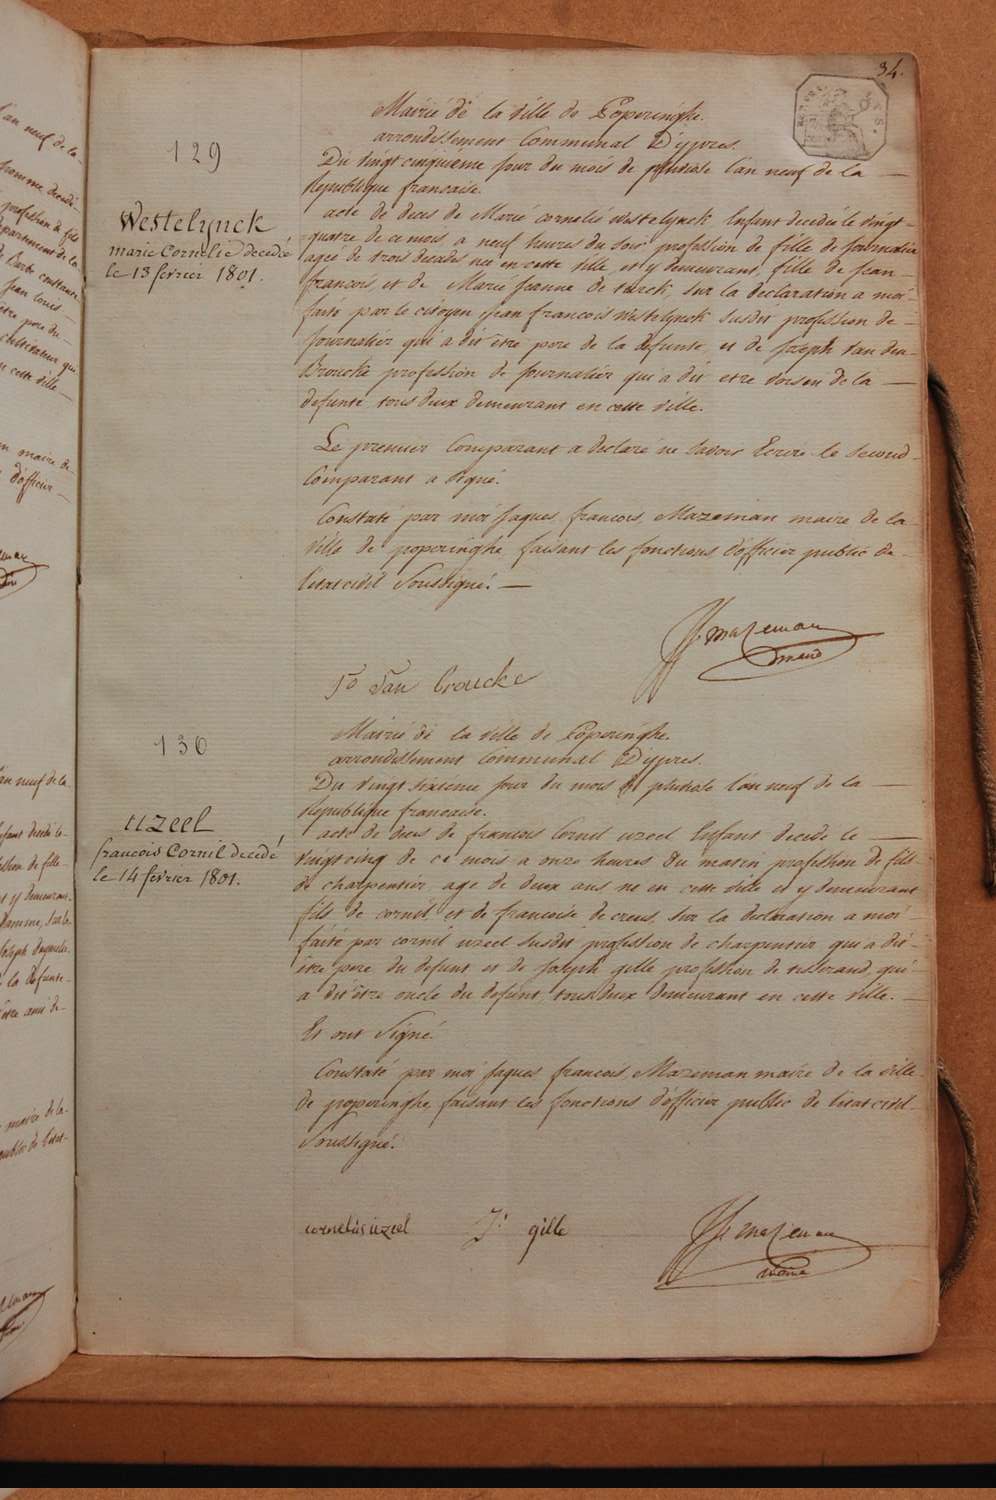 34.
129
Westelynck
marie Cornelie decedé
le 13 fevrier 1801.
Mairie de la ville de Poperinghe.
arrondissement Communal D'ypres.
Du vingt cinquieme jour du mois de pluviose l'an neuf de la —
Republique francaise.
acte de deces de Marie cornelie westelynck Enfant decedée le vingt-
quatre de ce mois a neuf heures du soir profession de fille de journalier
agée de trois decades née en cette ville et y demeurant, fille de jean-
francois, et de Marie Jeanne de turck, sur la declaration a moi-
faite par le citoyen jean francois westelynck susdit profession de-
journalier qui a dit être pere de la defunte, et de joseph van den-
Broucke profession de journalier qui a dit etre voisin de la —
defunte tous deux demeurant en cette ville.
Le premier Comparant a declaré ne savoir Ecrire le second-
Comparant a signé.
Constaté par moi jaques francois Mazeman maire de la-
ville de poperinghe faisant les fonctions d'officier public de-
l'etat civil soussigné. —
J f. mazeman
maire
Jo Van broucke
130
uzeel
francois Cornil decedé
le 14 fevrier 1801.
Mairie de la ville de Poperinghe.
arrondissement Communal D'ypres.
Du vingt sixieme jour du mois de pluviose l'an neuf de la —
Republique francaise.
acte de deces de francois Cornil uzeel Enfant decedé le —
vingtcinq de ce mois a onze heures du matin profession de fils
de charpentier age de deux ans né en cette ville et y demeurant
fils de cornil, et de francoise de creus, sur la declaration a moi-
faite par cornil uzeel susdit profession de charpentier qui a dit-
être pere du defunt et de joseph gille profession de tisserand qui-
a dit être oncle du defunt, tous deux demeurant en cette ville. —
Et ont signé.
Constaté par moi jaques francois Mazeman maire de la ville
de poperinghe faisant les fonctions d'officier public de l'etat civil-
soussigné.
cornelis uzeel J: gille
J f. mazeman
maire